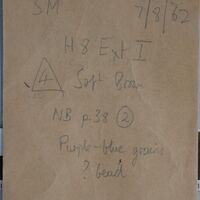 SM 7/8/62
H8 Ext I
4 Soft Brown
NB p.38 2
Purple-blue grains
? bead.